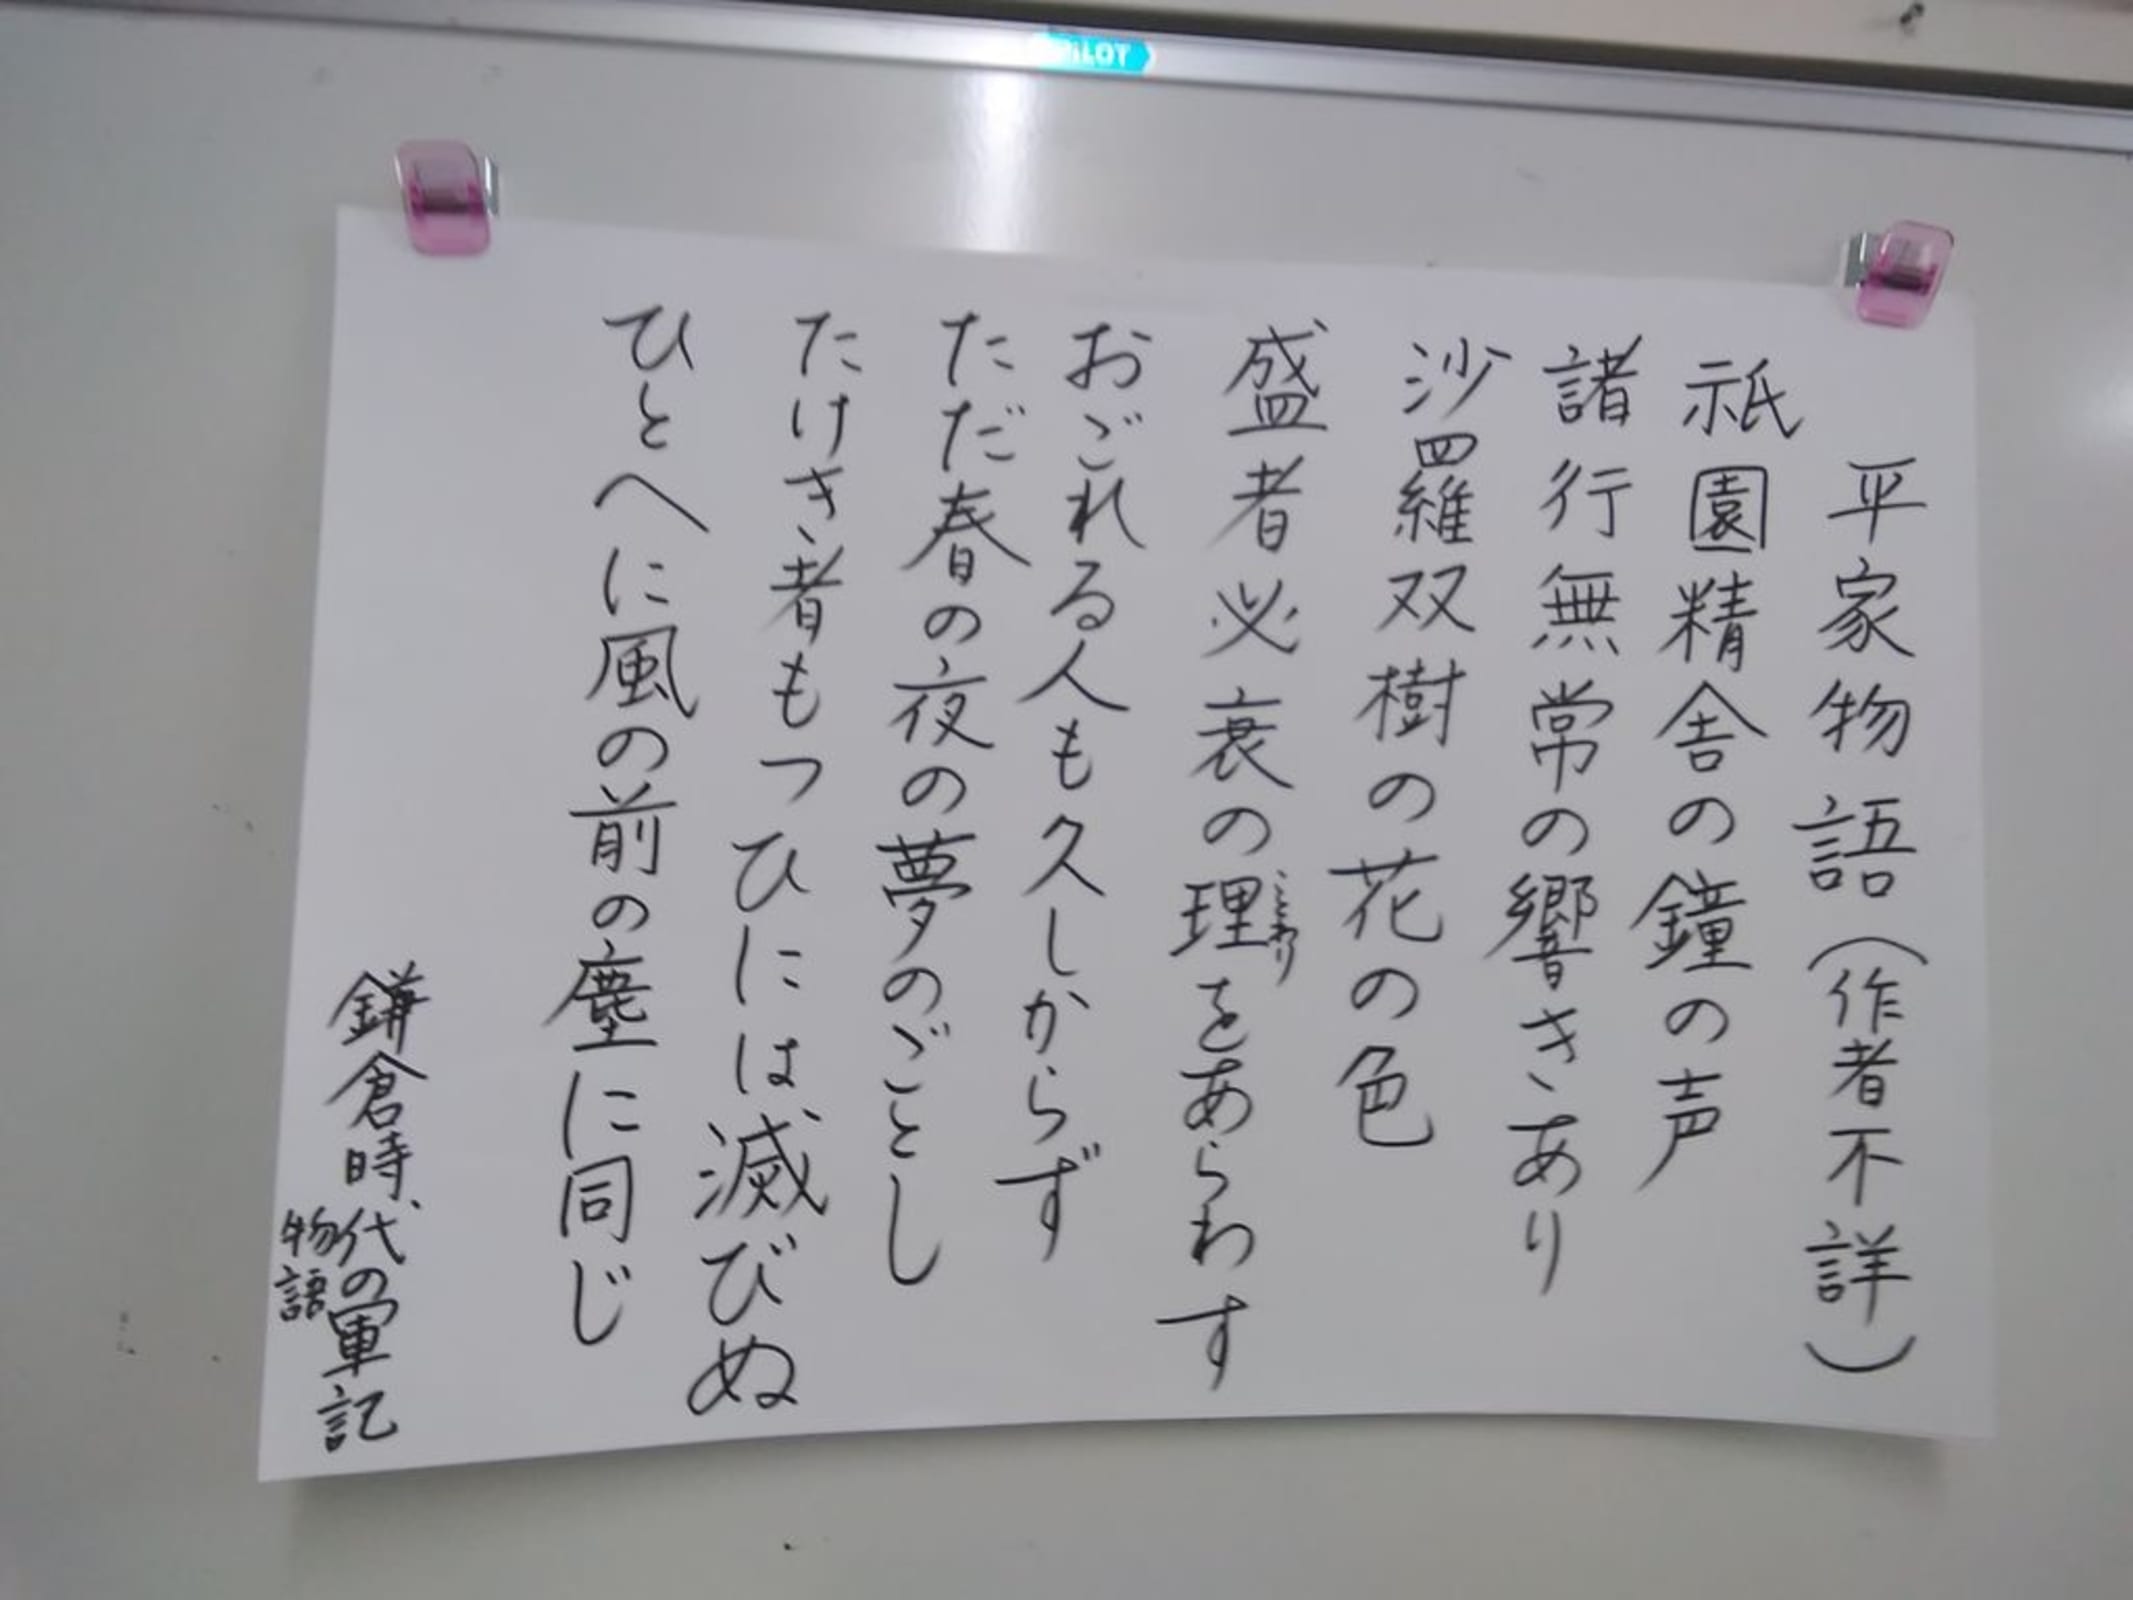 平家物語（作者不詳）
祇園精舎の鐘の声
諸行無常の響きあり
沙羅双樹の花の色
盛者必衰の理をあらわす
ことわり
おごれる人も久しからず
ただ春の夜の夢のごとし
たけき者もつひには滅びぬ
ひとへに風の前の塵に同じ
鎌倉時代の軍記
物語
PILOT